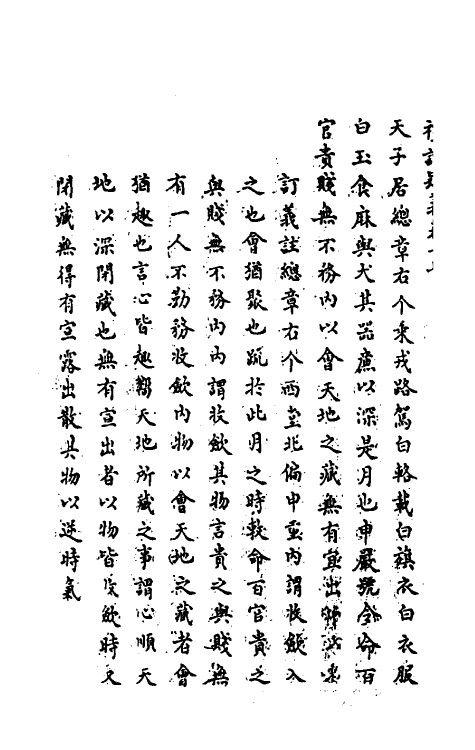 天子居總章右个乘戎路駕白輅載白旗衣白衣服
白玉食麻與犬其器廉以深是月也申嚴號令命百
官貴賤無不務內以會天地之藏無有宣出
訂義註總章右个西堂北偏中室內謂收斂入
之也會猶聚也疏於此月之時敕命百官貴之
與賤無不務內內謂收斂其物言貴之與賤無
有一人不勤務收斂內物以會天地之藏者會
猶趣也言心皆趣嚮天地所藏之事謂心順天
地以深閉藏也無有宣出者以物皆收斂時又
閉藏無得有宣露出散其物以逆時氣